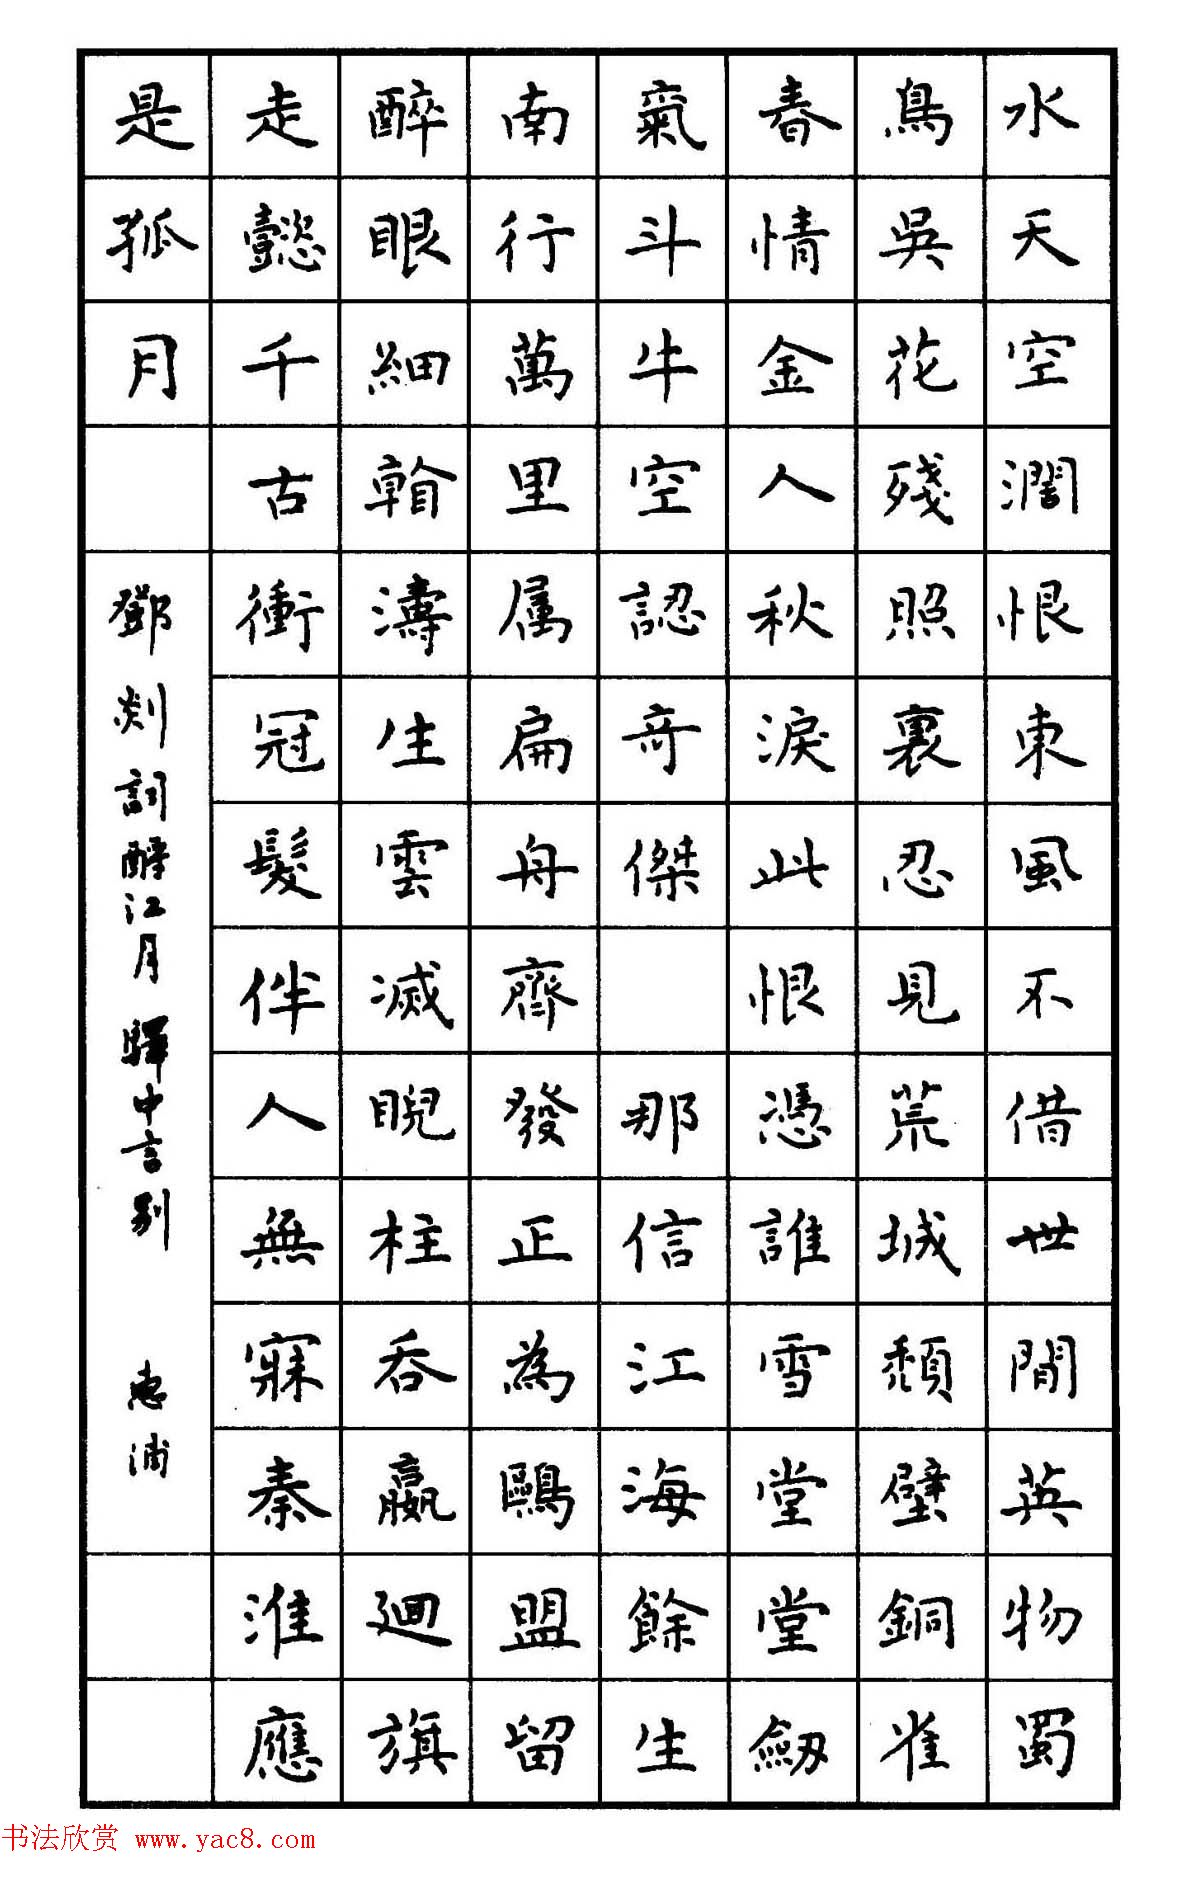 水天空濶恨東風不借世間英物蜀
鳥吳花殘照裏忍見荒城頽壁銅雀
春情金人秋淚此恨憑誰雪堂堂劒
氣斗牛空認竒傑 那信江海餘生
南行萬里属扁舟齊發正為鷗盟留
醉眼細看濤生雲滅睨柱吞嬴迴旗
走懿千古衝冠髮伴人無寐秦淮應
是孤月
鄧剡詞酹江月 驛中言別 惠浦
书法欣赏 www.yac8.com